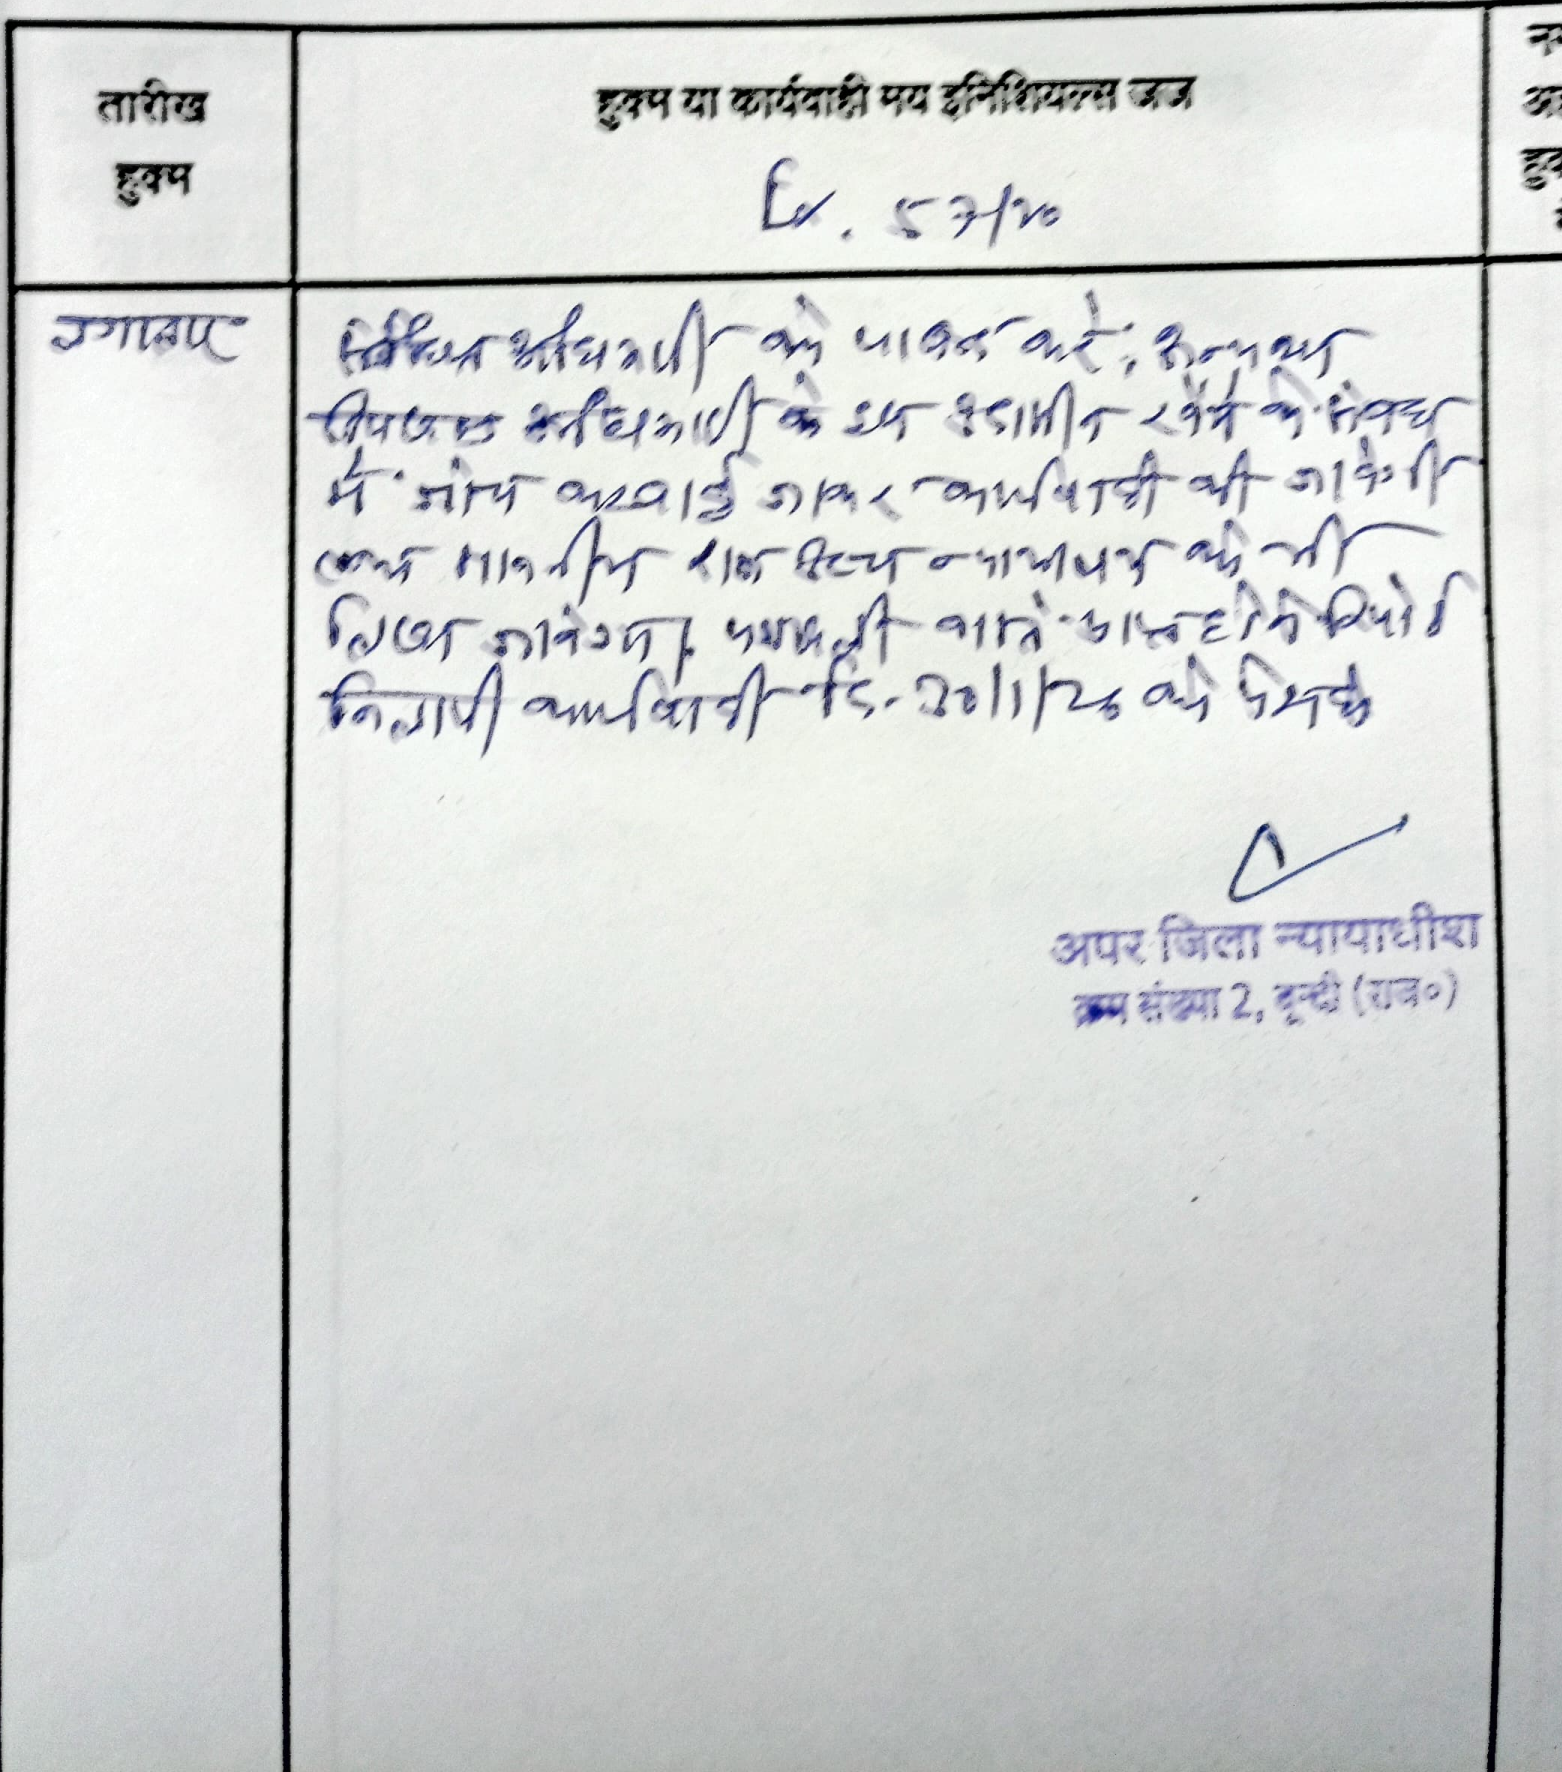 तारीख
हुक्म
हुक्म या कार्यवाही मय इनिशियल्स जज
Ex. 57/20
लगातार
अधिकारी को पाबन्द करे, अन्यथा
अधिकारी के इस उदासीन रवैये के संबंध
में जांच करवाई जाकर कार्यवाही की जावेगी
तथा माननीय राज उच्च न्यायालय को भी
लिखा जावेगा। पत्रावली वास्ते रिपोर्ट
कार्यवाही दि. को पेश हो
अपर जिला न्यायाधीश
क्रम संख्या 2, बून्दी (राज०)